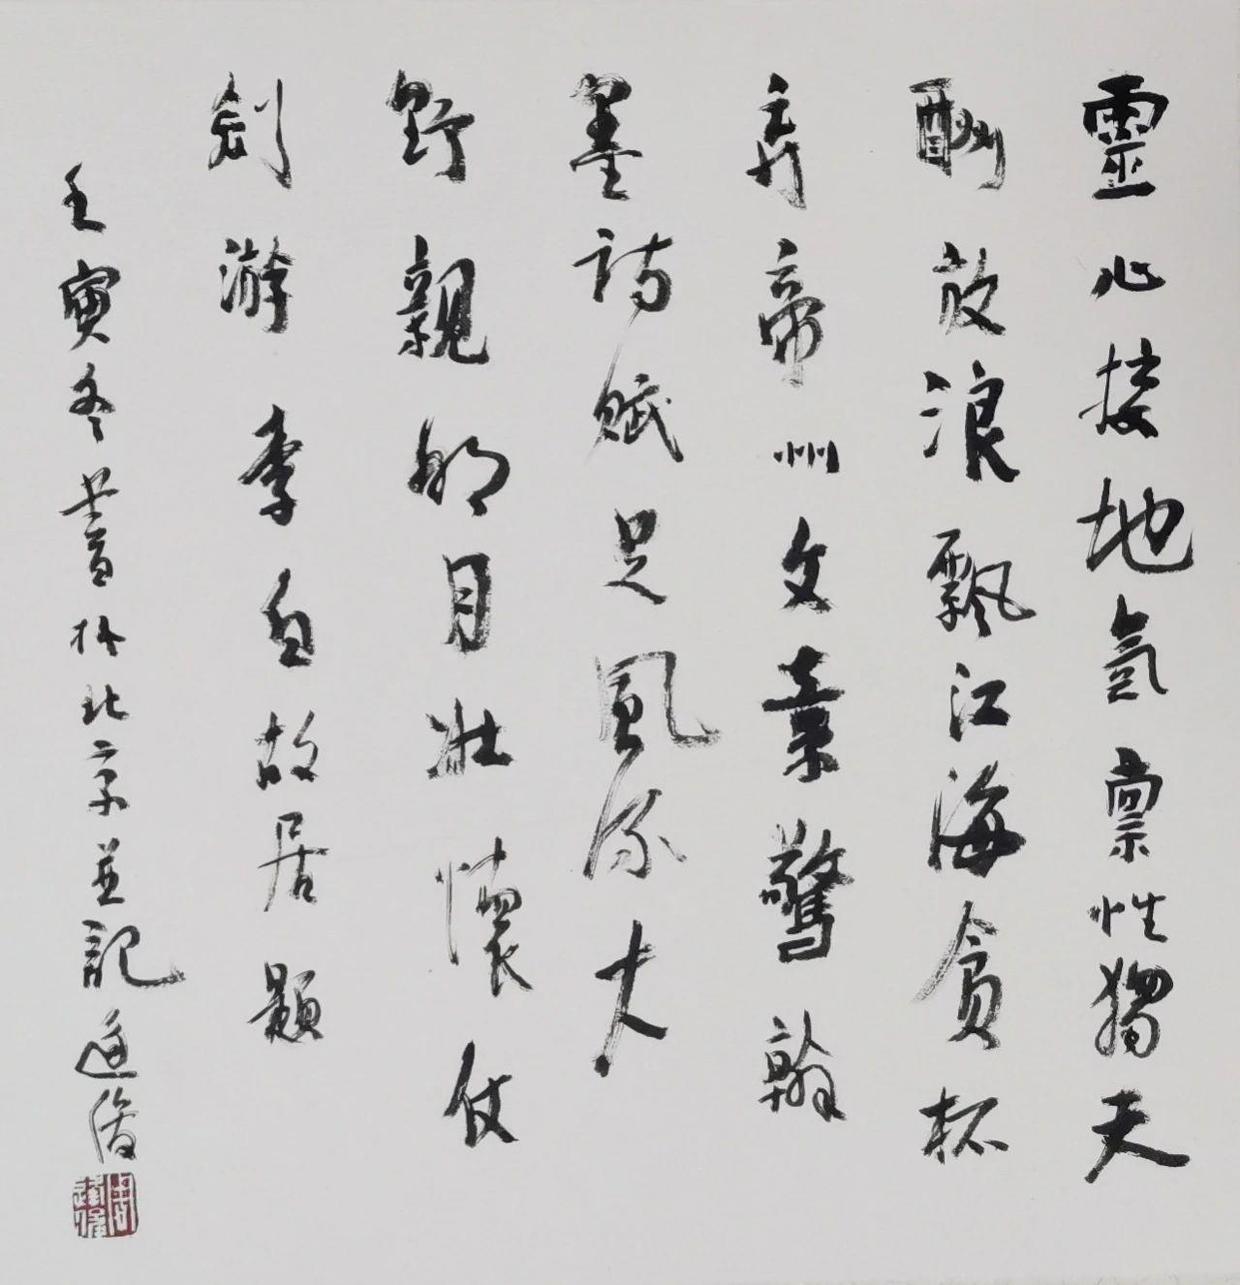 靈心接地氣稟性獨天
酬放浪飄江海貪杯
弃帝州文章驚翰
墨詩賦足風流大
野親明月壯懷仗
劍游李白故居題
壬寅冬書於北京並記